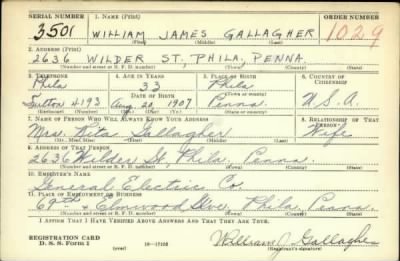 SERIAL NUMBER 1. NAME (Print) ORDER NUMBER
3501 WILLIAM JAMES GALLAGHER 1029
(First) (Middle) (Last)
2. ADDRESS (Print)
2636 WILDER ST, PHILA, PENNA.
(Number and street or R. F. D. number) (Town) (County) (State)
3. TELEPHONE 4. AGE IN YEARS 5. PLACE OF BIRTH 6. COUNTRY OF CITIZENSHIP
Phila 33 Phila
DATE OF BIRTH (Town or county)
4193 Aug. 20, 1907 Penna. U.S.A.
(Exchange) (Number) (Mo.) (Day) (Yr.) (State or country)
7. NAME OF PERSON WHO WILL ALWAYS KNOW YOUR ADDRESS 8. RELATIONSHIP OF THAT PERSON
Mrs. Rita Gallagher Wife
(Mr., Mrs., Miss) (First) (Middle) (Last)
9. ADDRESS OF THAT PERSON
2636 Wilder St. Phila. Penna.
(Number and street or R. F. D. number) (Town) (County) (State)
10. EMPLOYER'S NAME
General Electric Co.
11. PLACE OF EMPLOYMENT OR BUSINESS
69th & Elmwood Ave, Phila. Penna.
(Number and street or R. F. D. number) (Town) (County) (State)
I AFFIRM THAT I HAVE VERIFIED ABOVE ANSWERS AND THAT THEY ARE TRUE.
REGISTRATION CARD
D. S. S. Form 1 (over) 16-17105 William J. Gallagher
(Registrant's signature)